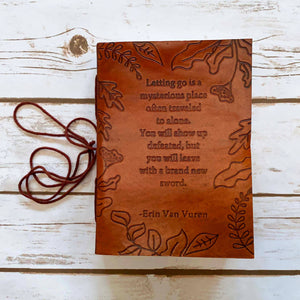 Letting go is a
mysterious place
often traveled
to alone.
You will show up
defeated, but
you will leave
with a brand new
sword.
-Erin Van Vuren